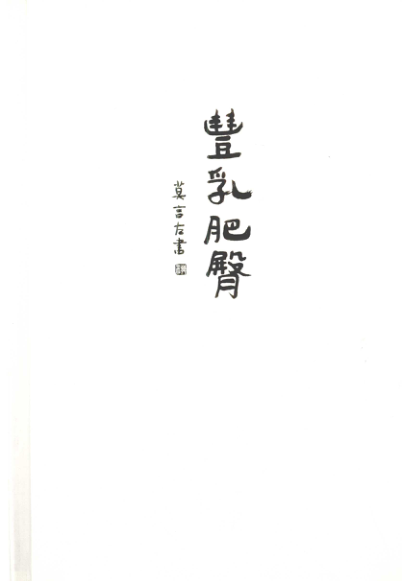 豐乳肥臀
莫言左書